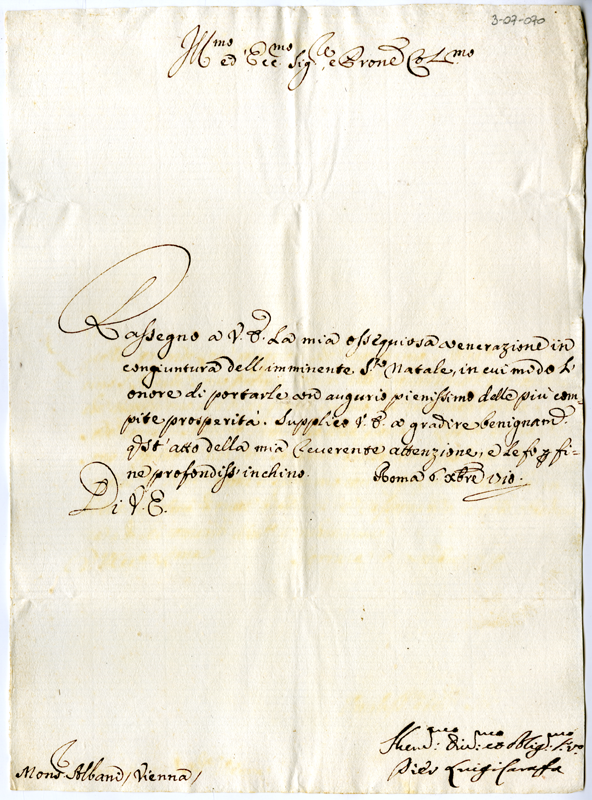 3-07-070
Ill.mo ed Ecc.mo Sig.re e Prone Col.mo
Rassegno a V. E. la mia ossequiosa venerazione in
congiuntura dell'imminente S.to Natale, in cui mi dò l'
onore di portarle con augurio pienissimo delle più com-
pite prosperità. Supplico V. E. a gradire benignam.
q.st'atto della mia reverente attenzione, e le fò p fi-
ne profondiss.o inchino. Roma 6 Xbre 1710.
Di V. E.
Mons.r Albani, Vienna,
Pier Luigi Carafa